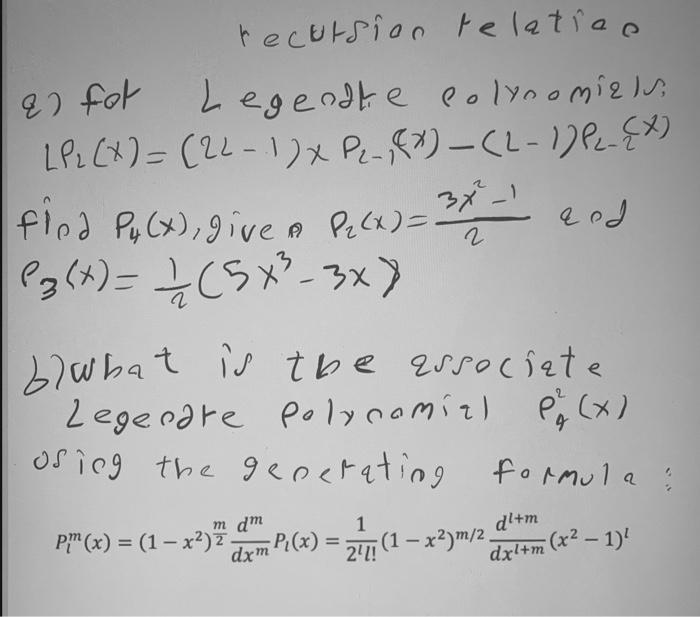 recursion relation
a) for Legendre polynomials:
LP_L(x) = (2L-1)x P_{L-1}(x) - (L-1)P_{L-2}(x)
find P_4(x), given P_2(x) = \frac{3x^2-1}{2} and
P_3(x) = \frac{1}{2}(5x^3-3x)
b) what is the associate
Legendre polynomial P_4^2(x)
using the generating formula:
P_l^m(x) = (1-x^2)^{\frac{m}{2}} \frac{d^m}{dx^m} P_l(x) = \frac{1}{2^l l!}(1-x^2)^{m/2} \frac{d^{l+m}}{dx^{l+m}}(x^2-1)^l